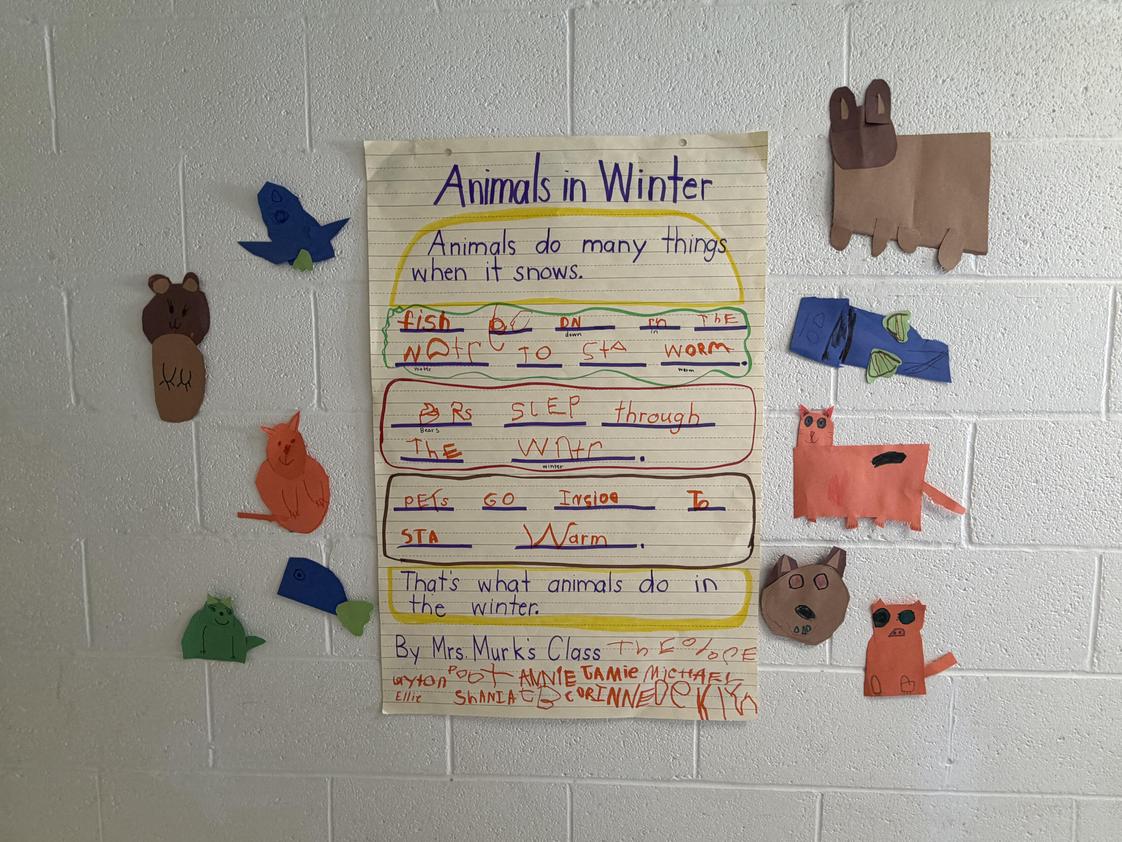 Animals in Winter
Animals do many things
when it snows.
fish DN in ThE
down in
TO StA WORM.
water warm
Rs SLEP through
Bears
ThE WNtr.
winter
PETs GO Insioe To
STA Warm.
That's what animals do in
the winter.
By Mrs. Murk's Class
ANNIE JAMie MicHAEL
Ellie SHANIA CORINNE